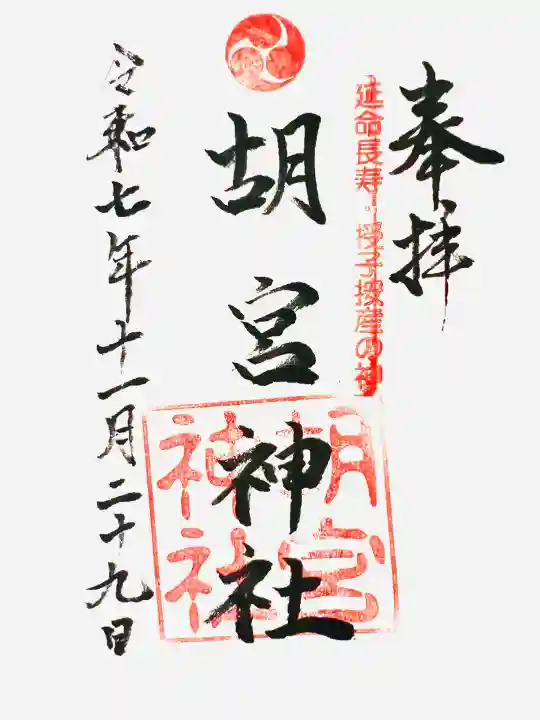 奉拝
延命長寿・授子按産の神
胡宮神社
胡宮
神社
令和七年十一月二十九日